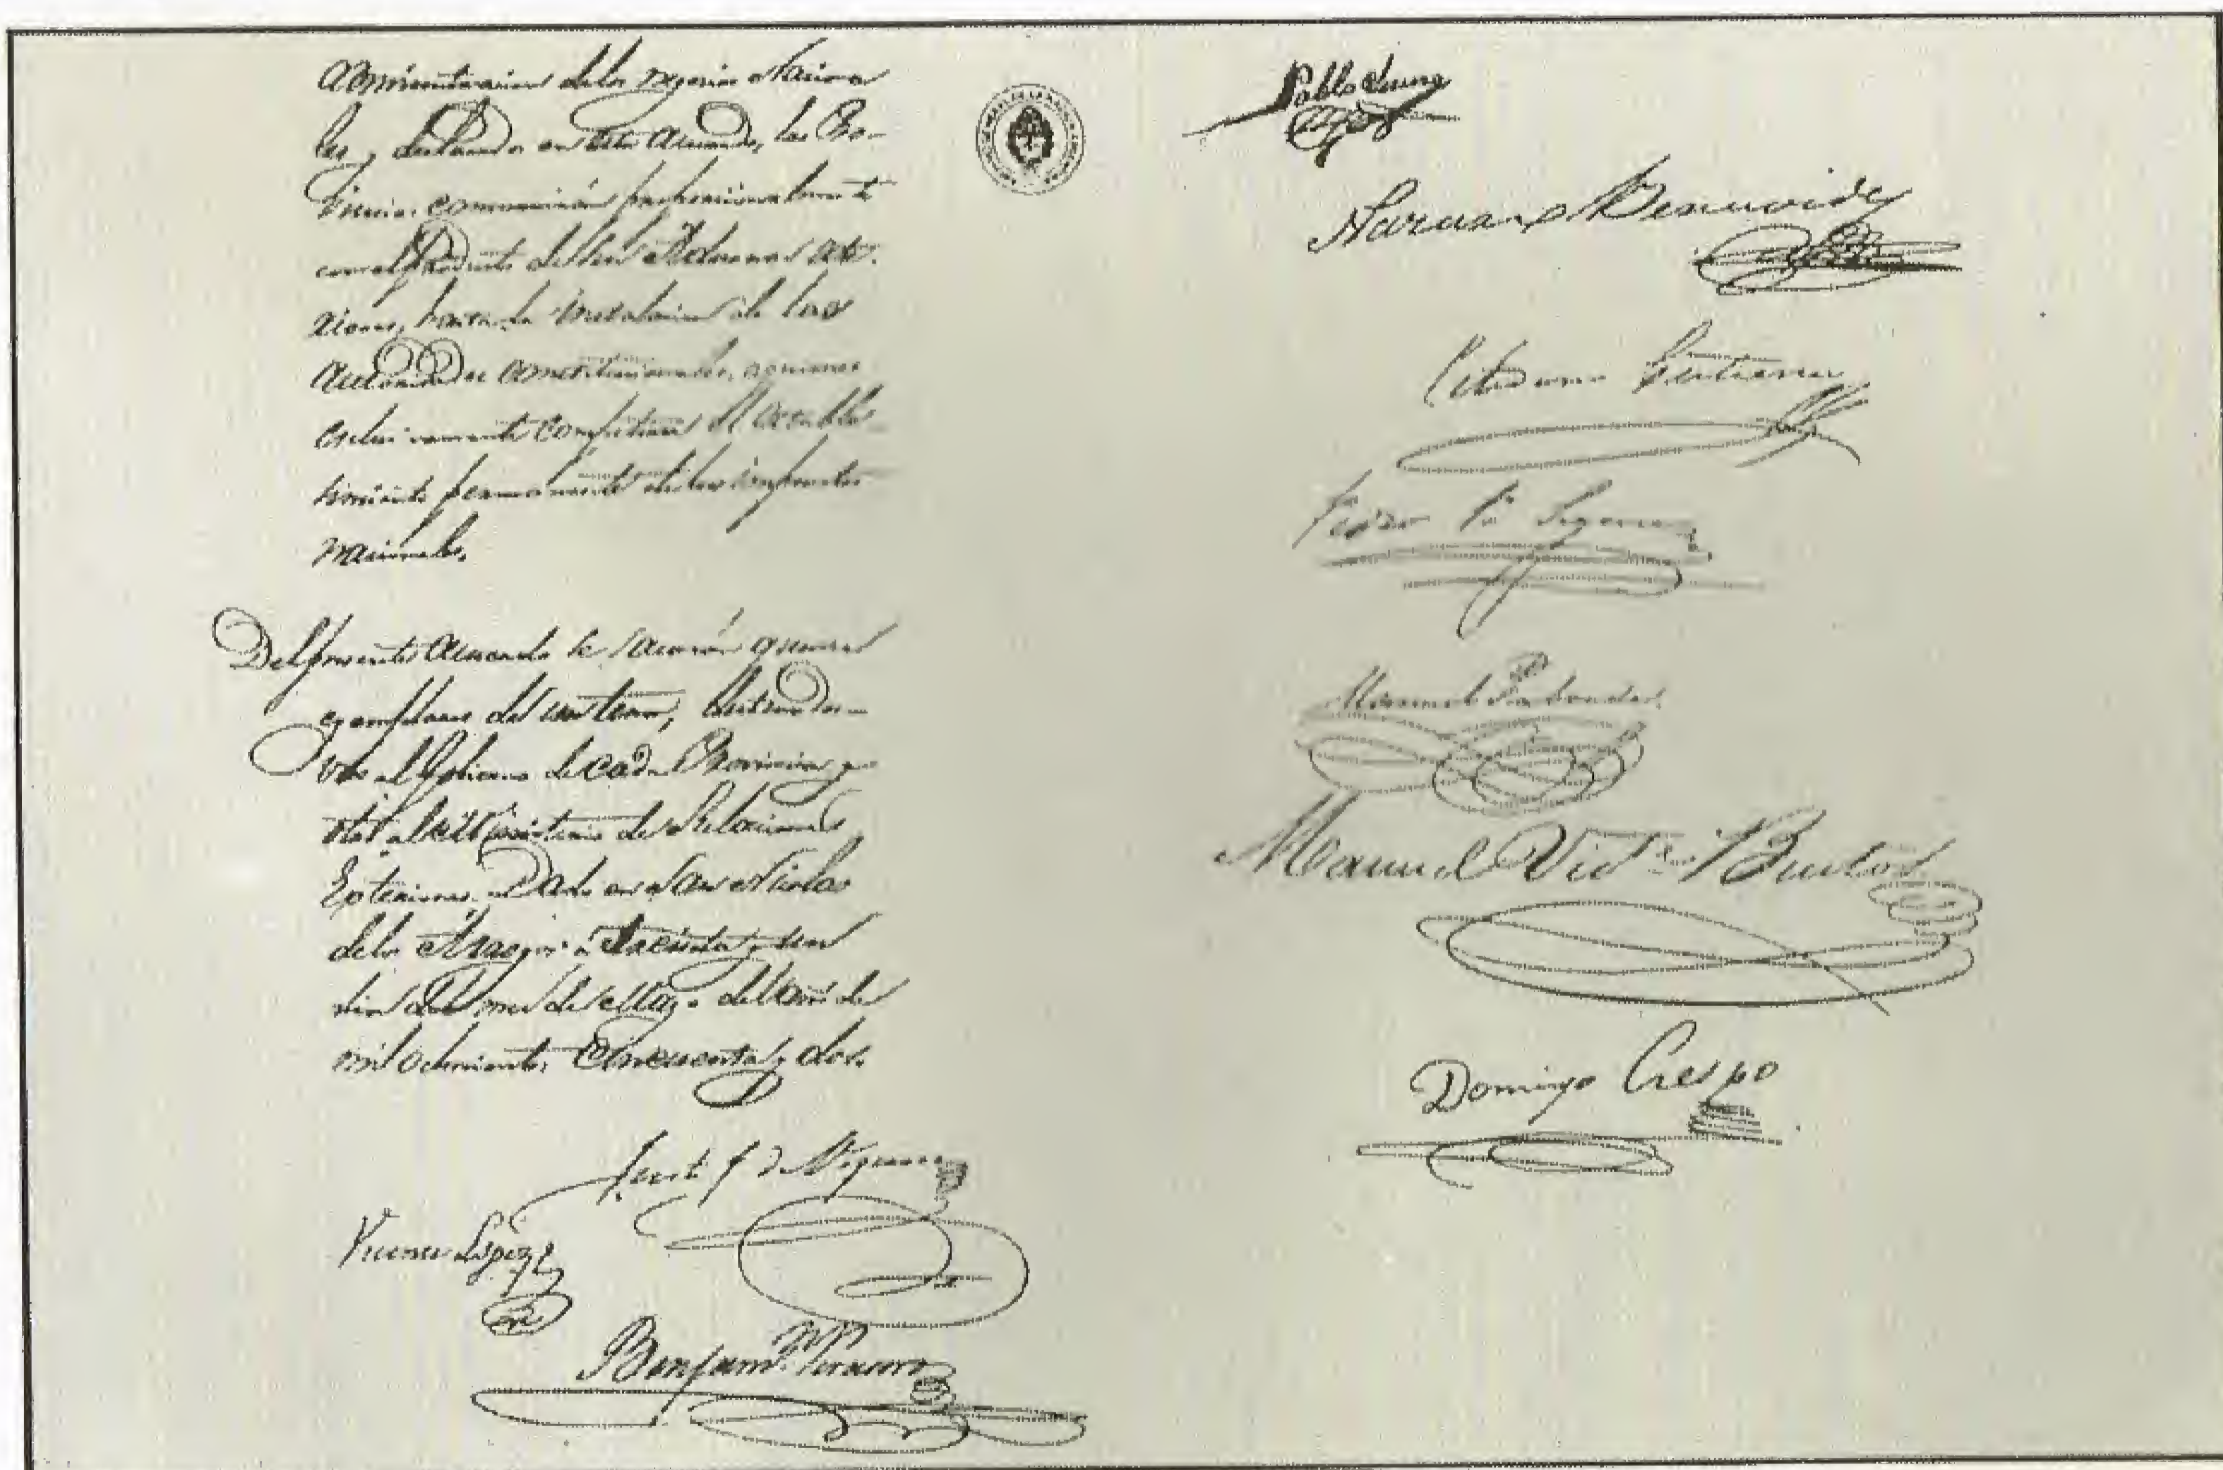 Administracion de los negocios Naciona
les, declarados en este Acuerdo, las Pro-
vincias concurrirán proporcionalmente
con el Producto de sus Aduanas este-
riores, hasta la instalacion de las
Autoridades Constitucionales, a quienes
esclusivamente competirá el estable-
cimiento permanente de los impuestos
nacionales.
Del presente Acuerdo se sacarán quince
ejemplares de un tenor, destinados
uno al Gobierno de cada Provincia y
otro al Ministerio de Relaciones
Exteriores. Dado en San Nicolas
de los Arroyos á treinta y un
dias del mes de Mayo del año de
mil ochocientos Cincuenta y dos.
Justo J. de Urquiza
Vicente Lopez
Benjamn. Virasoro
Pablo Lucero
Nazario Benavides
Celedonio Gutierrez
Pedro Pe. Segura
Manuel Taboada
Manuel Victe. Bustos
Domingo Crespo